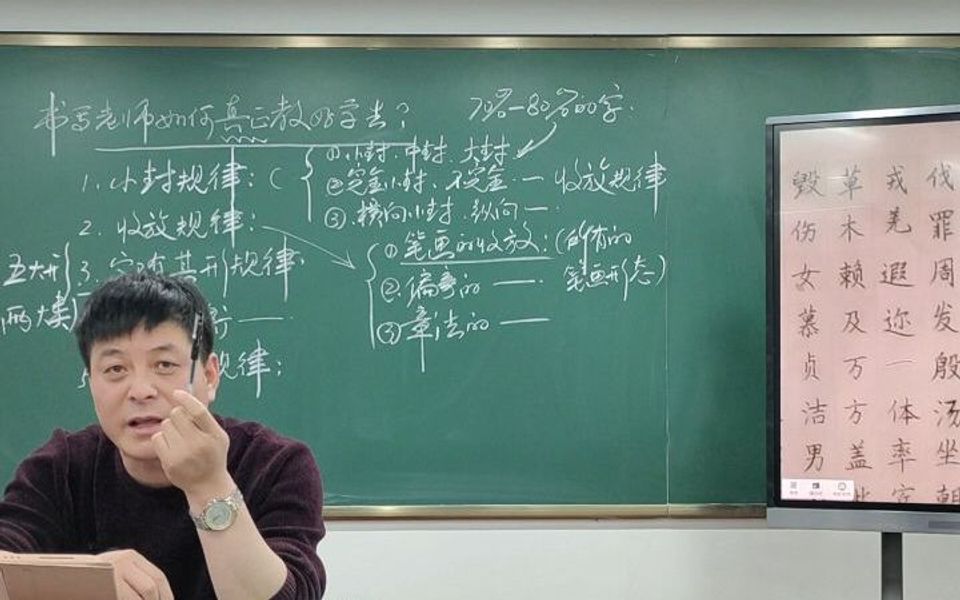 书写老师如何真正教好学生？
70%-80%的字.
1. 小封规律：(
①小封、中封、大封
②完全小封、不完全一 收放规律
③横向小封、纵向一.
2. 收放规律：
①笔画的收放：(所有的
笔画形态)
②偏旁的 一
③章法的 一
五大形
(两大类)
3. 字有其形规律
规律：
伐罪周发殷汤坐朝
戎羌遐迩一体率宾
草木赖及万方盖此
毁伤女慕贞洁男